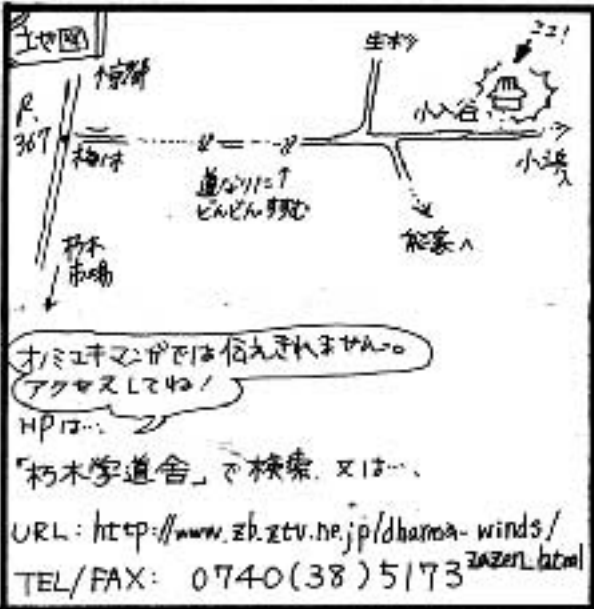 地図
ココ!
↑京都
生杉
R.
367
小入谷
梅ノ木
小浜へ
道なりに↑
どんどんすすむ
能家へ
朽木
市場
オノミユキマンガでは伝えきれません。
アクセスしてね!
HPは…
「朽木学道舎」で検索、又は…、
URL: http://www.zb.ztv.ne.jp/dharma-winds/
zazen.html
TEL/FAX: 0740(38)5173